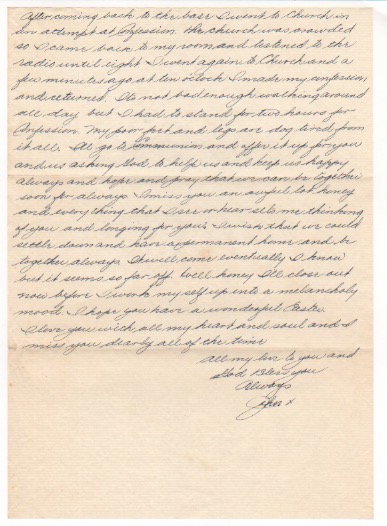 After coming back to the base I went to Church in
an attempt at Confession. The church was crowded
so I came back to my room and listened to the
radio until eight. I went again to Church and a
few minutes ago, at ten o'clock I made my confession
and returned. It's not bad enough walking around
all day but I had to stand for two hours for
Confession. My poor feet and legs are dog tired from
it all. I'll go to Communion and offer it up for you
and us asking God to help us and keep us happy
always and hope and pray that we can be together
soon for always. I miss you an awful lot honey
and everything that I see or hear sets me thinking
of you and longing for you. I wish that we could
settle down and have a permanent home and be
together always. It will come eventually I know
but it seems so far off. Well honey I'll close out
now before I work my self up into a melancholy
mood. I hope you have a wonderful Easter.
I love you with all my heart and soul and I
miss you dearly all of the time
All my love to you and
God Bless you
Always
x